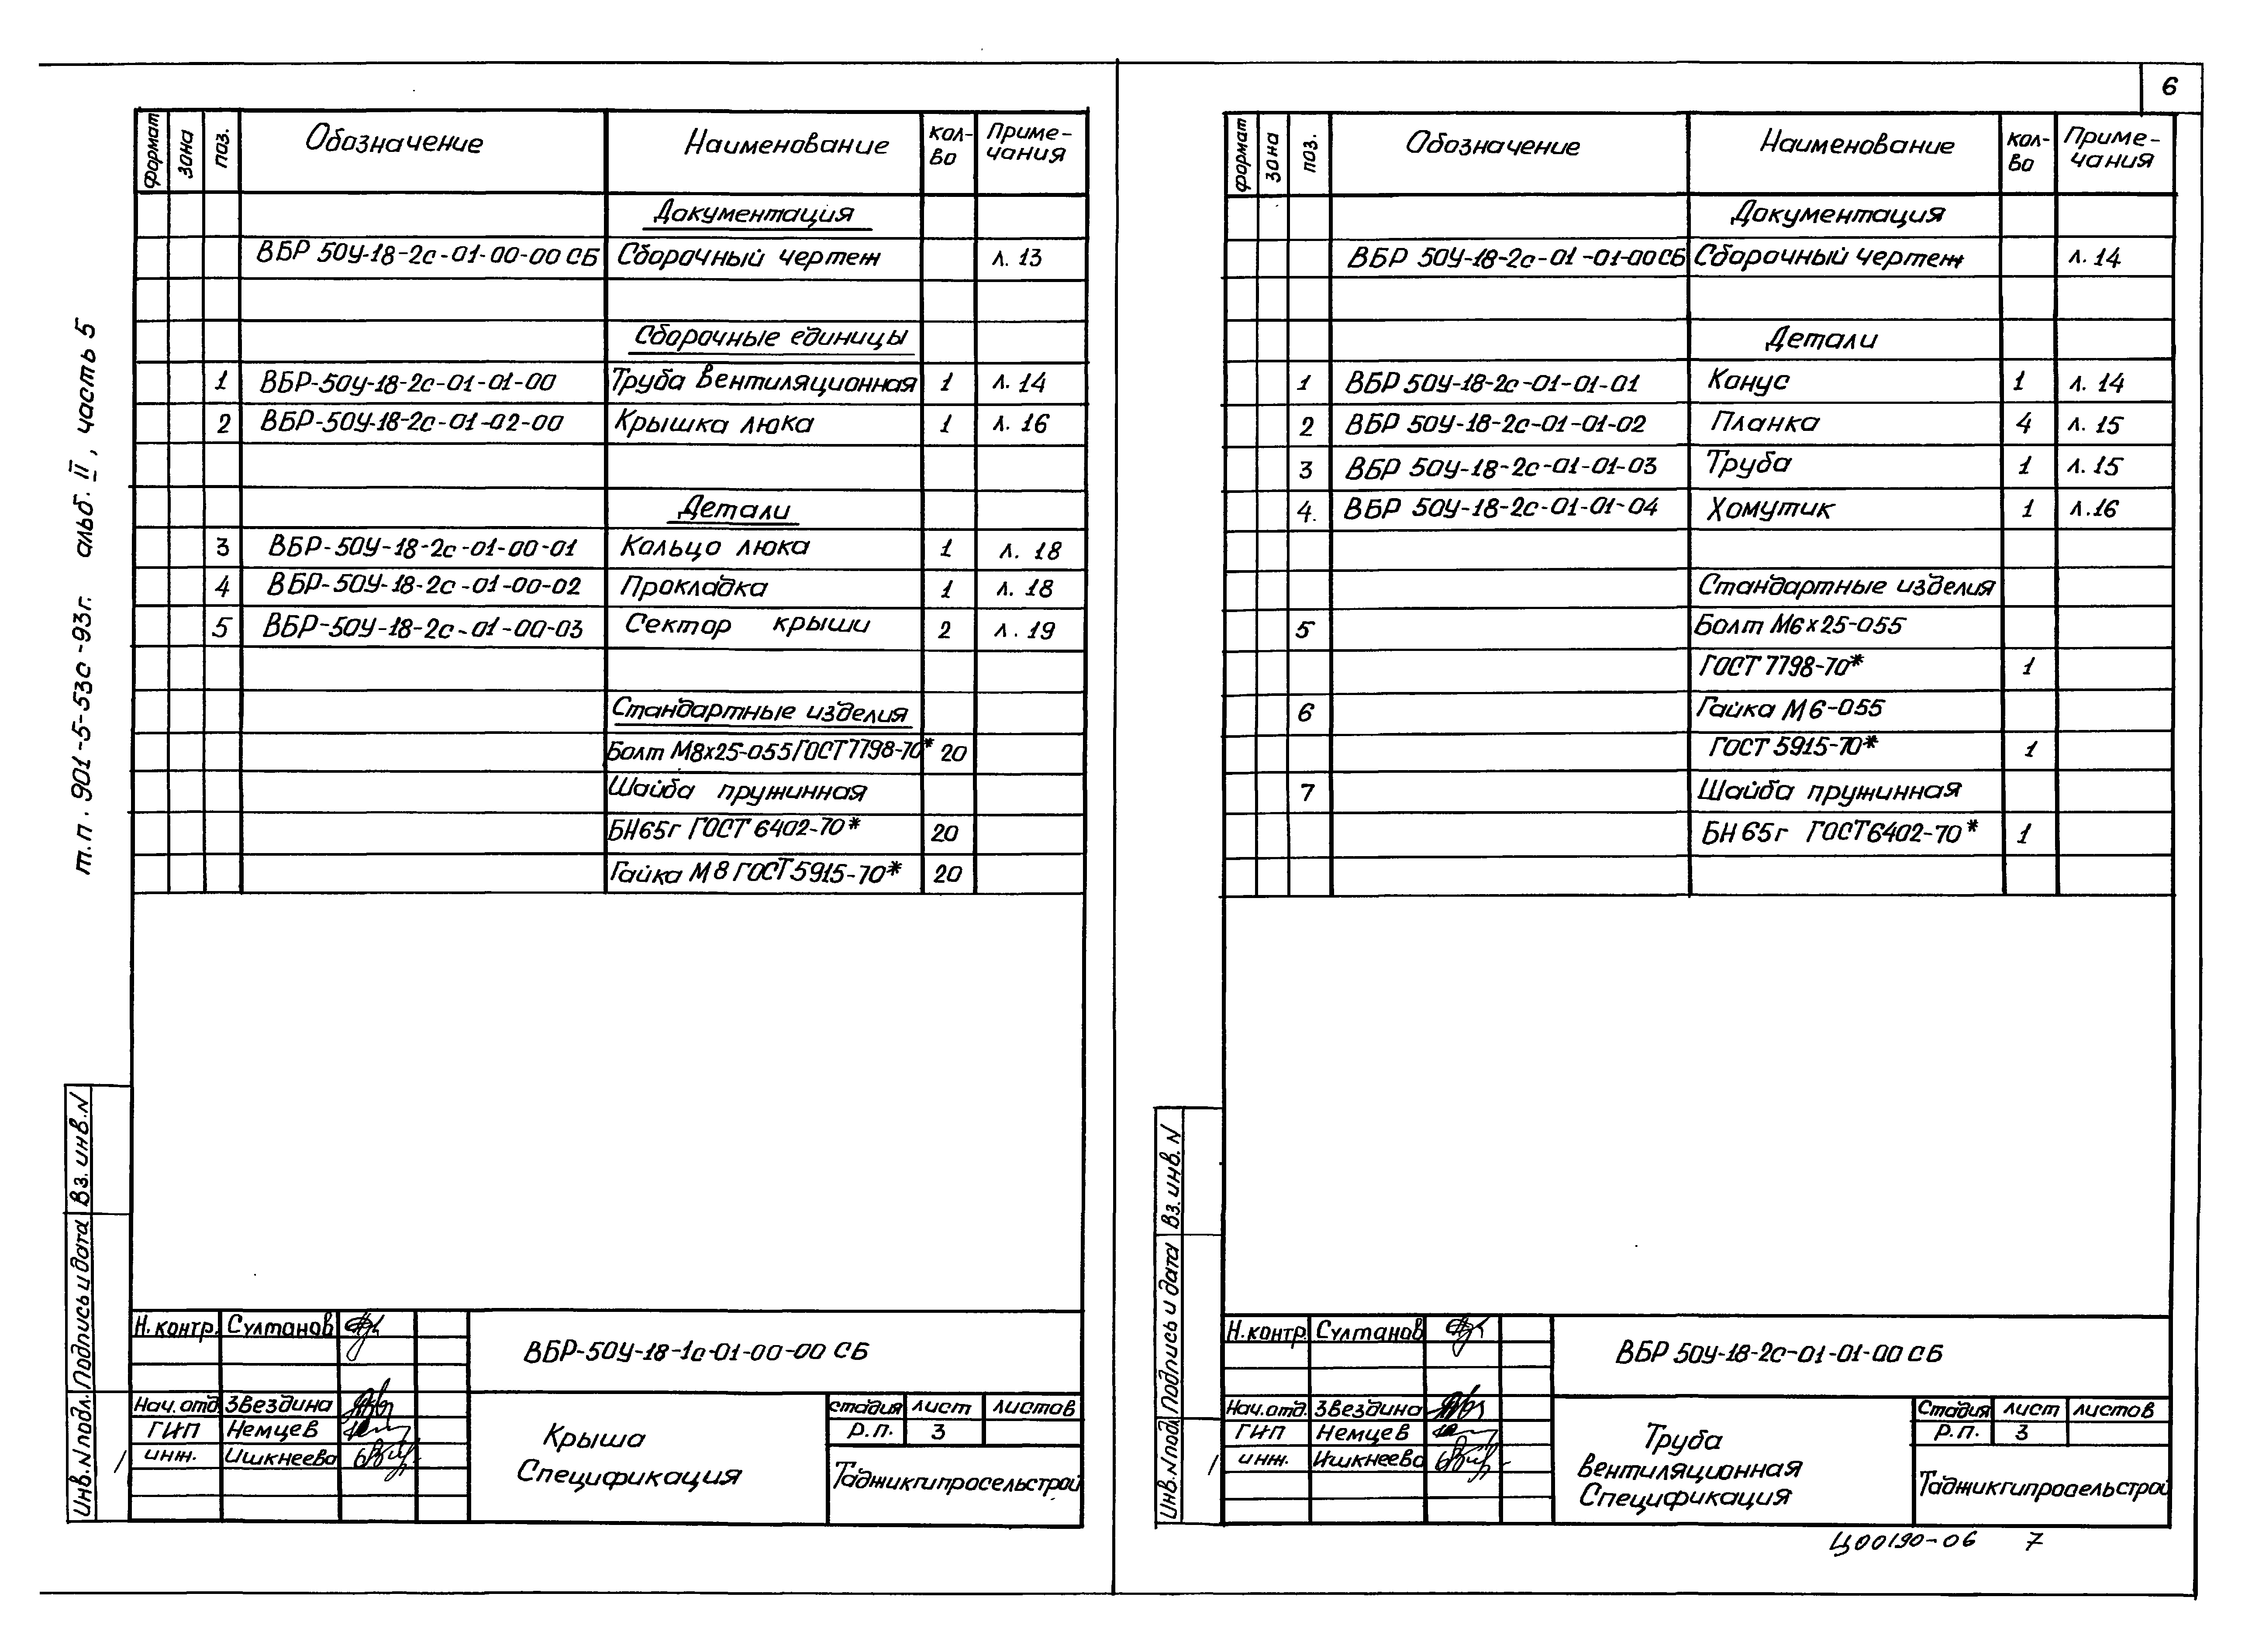 6
т.п. 901-5-53с-93г. альб. II, часть 5
формат зона поз. Обозначение Наименование кол-во Приме-чания
Документация
ВБР 50У-18-2с-01-00-00 СБ Сборочный чертеж л. 13
Сборочные единицы
1 ВБР-50У-18-2с-01-01-00 Труба вентиляционная 1 л. 14
2 ВБР-50У-18-2с-01-02-00 Крышка люка 1 л. 16
Детали
3 ВБР-50У-18-2с-01-00-01 Кольцо люка 1 л. 18
4 ВБР-50У-18-2с-01-00-02 Прокладка 1 л. 18
5 ВБР-50У-18-2с-01-00-03 Сектор крыши 2 л. 19
Стандартные изделия
Болт М8х25-055 ГОСТ 7798-70* 20
Шайба пружинная
БН65г ГОСТ 6402-70* 20
Гайка М8 ГОСТ 5915-70* 20
Инв. N подл. Подпись и дата Вз. инв. N
Н. контр. Султанов
ВБР-50У-18-1с-01-00-00 СБ
Нач. отд. Звездина
ГИП Немцев
инж. Ишкнеева
Крыша
Спецификация
стадия лист листов
Р.П. 3
Таджикгипросельстрой
формат зона поз. Обозначение Наименование кол-во Приме-чания
Документация
ВБР 50У-18-2с-01-01-00 СБ Сборочный чертеж л. 14
Детали
1 ВБР 50У-18-2с-01-01-01 Конус 1 л. 14
2 ВБР 50У-18-2с-01-01-02 Планка 4 л. 15
3 ВБР 50У-18-2с-01-01-03 Труба 1 л. 15
4. ВБР 50У-18-2с-01-01-04 Хомутик 1 л. 16
Стандартные изделия
5 Болт М6х25-055
ГОСТ 7798-70* 1
6 Гайка М6-055
ГОСТ 5915-70* 1
7 Шайба пружинная
БН 65г ГОСТ 6402-70* 1
Инв. N подл Подпись и дата Вз. инв. N
Н. контр. Султанов
ВБР 50У-18-2с-01-01-00 СБ
Нач. отд. Звездина
ГИП Немцев
инж. Ишкнеева
Труба
вентиляционная
Спецификация
Стадия лист листов
Р.П. 3
Таджикгипросельстрой
Ц00190-06 7